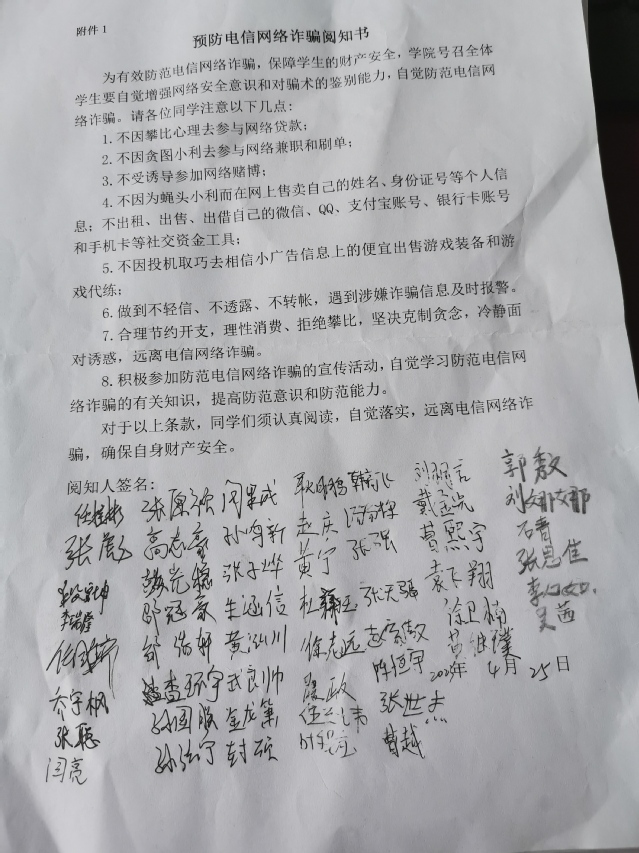 附件 1
预防电信网络诈骗阅知书
为有效防范电信网络诈骗，保障学生的财产安全，学院号召全体
学生要自觉增强网络安全意识和对骗术的鉴别能力，自觉防范电信网
络诈骗。请各位同学注意以下几点：
1. 不因攀比心理去参与网络贷款；
2. 不因贪图小利去参与网络兼职和刷单；
3. 不受诱导参加网络赌博；
4. 不因为蝇头小利而在网上售卖自己的姓名、身份证号等个人信
息；不出租、出售、出借自己的微信、QQ、支付宝账号、银行卡账号
和手机卡等社交资金工具；
5. 不因投机取巧去相信小广告信息上的便宜出售游戏装备和游
戏代练；
6. 做到不轻信、不透露、不转帐，遇到涉嫌诈骗信息及时报警。
7. 合理节约开支，理性消费、拒绝攀比，坚决克制贪念，冷静面
对诱惑，远离电信网络诈骗。
8. 积极参加防范电信网络诈骗的宣传活动，自觉学习防范电信网
络诈骗的有关知识，提高防范意识和防范能力。
对于以上条款，同学们须认真阅读，自觉落实，远离电信网络诈
骗，确保自身财产安全。
阅知人签名：
郭敏
张彪 孙鸣新 赵庆
张子烨 黄宁 张强 黄熙宇 张思佳
朱涵信 张天骄 袁飞翔
黄泓川 徐志远
武良帅 4月25日
乔宇枫 金龙 张世杰
张聪 封硕 曹越
闫亮